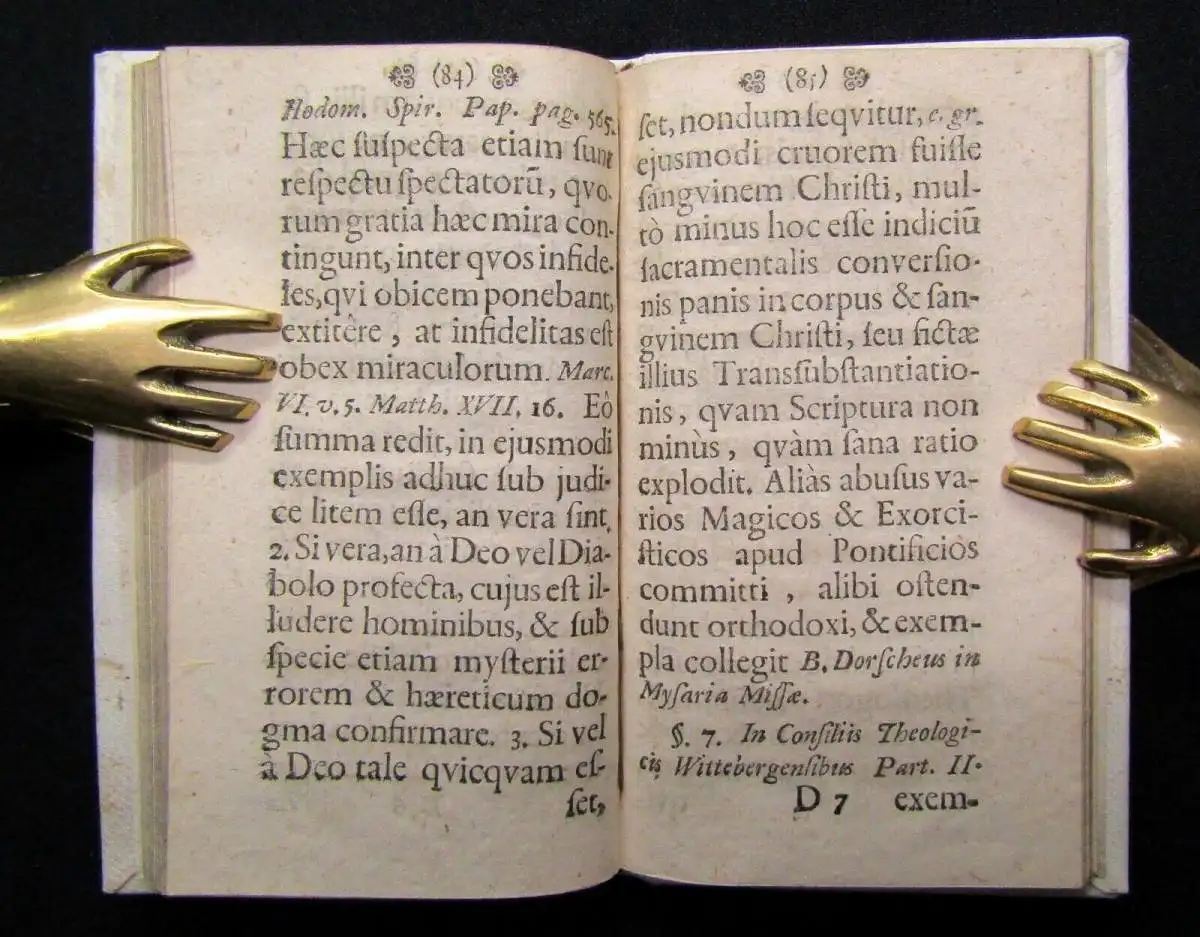 (84)
Hodom. Spir. Pap. pag. 565.
Hæc ſuſpecta etiam ſunt
reſpectu ſpectatorū, qvo-
rum gratia hæc mira con-
tingunt, inter qvos infide-
les, qvi obicem ponebant,
extitêre, at infidelitas eſt
obex miraculorum. Marc.
VI. v. 5. Matth. XVII, 16. Eò
ſumma redit, in ejusmodi
exemplis adhuc ſub judi-
ce litem eſſe, an vera ſint,
2. Si vera, an à Deo vel Dia-
bolo profecta, cujus eſt il-
ludere hominibus, & ſub
ſpecie etiam myſterii er-
rorem & hæreticum do-
gma confirmare. 3. Si vel
à Deo tale qvicqvam eſ-
ſet,
(85)
ſet, nondum ſeqvitur, e. gr.
ejusmodi cruorem fuiſſe
ſangvinem Chriſti, mul-
tò minus hoc eſſe indiciū
ſacramentalis converſio-
nis panis in corpus & ſan-
gvinem Chriſti, ſeu fictæ
illius Transſubſtantiatio-
nis, qvam Scriptura non
minùs, qvàm ſana ratio
explodit. Aliàs abuſus va-
rios Magicos & Exorci-
ſticos apud Pontificios
committi, alibi oſten-
dunt orthodoxi, & exem-
pla collegit B. Dorſcheus in
Myſaria Miſſæ.
§. 7. In Conſiliis Theologi-
cis Wittebergenſibus Part. II.
D 7 exem-